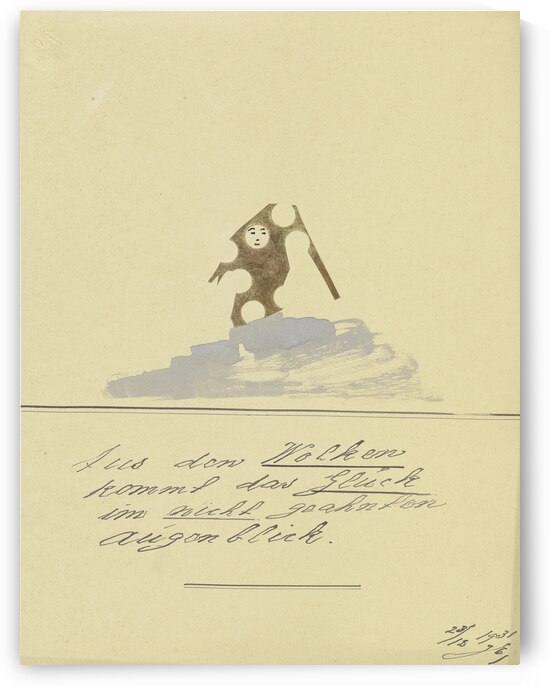 Aus den Wolken
kommt das Glück
im nicht geahnten
Augenblick.
23/12 1931